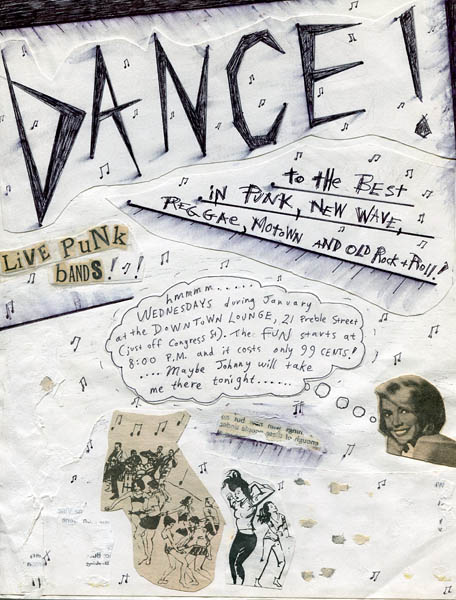 DANCE!
to the BEST
in PUNK, NEW WAVE,
REGGAE, MOTOWN AND OLD ROCK + ROLL!
LiVE PuNk
bANDS!!
hmmmm.....
WEDNESDAYS during January
at the DOWNTOWN LOUNGE, 21 Preble Street
(just off Congress St). The FUN starts at
8:00 P.M. and it costs only 99 CENTS!
.... Maybe Johnny will take
me there tonight......